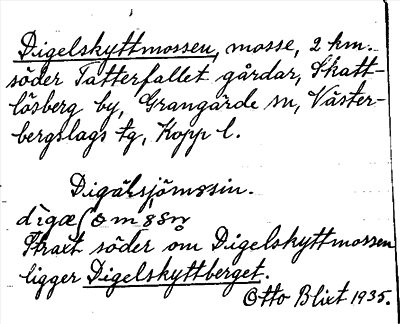 Digelskyttmossen, mosse, 2 km.
söder Tatterfallet gårdar, Skatt-
lösberg by, Grangärde sn, Väster-
bergslags tg, Kopp l.
Digälsjömssin.
Strax söder om Digelskyttmossen
ligger Digelskyttberget.
Otto Blixt 1935.